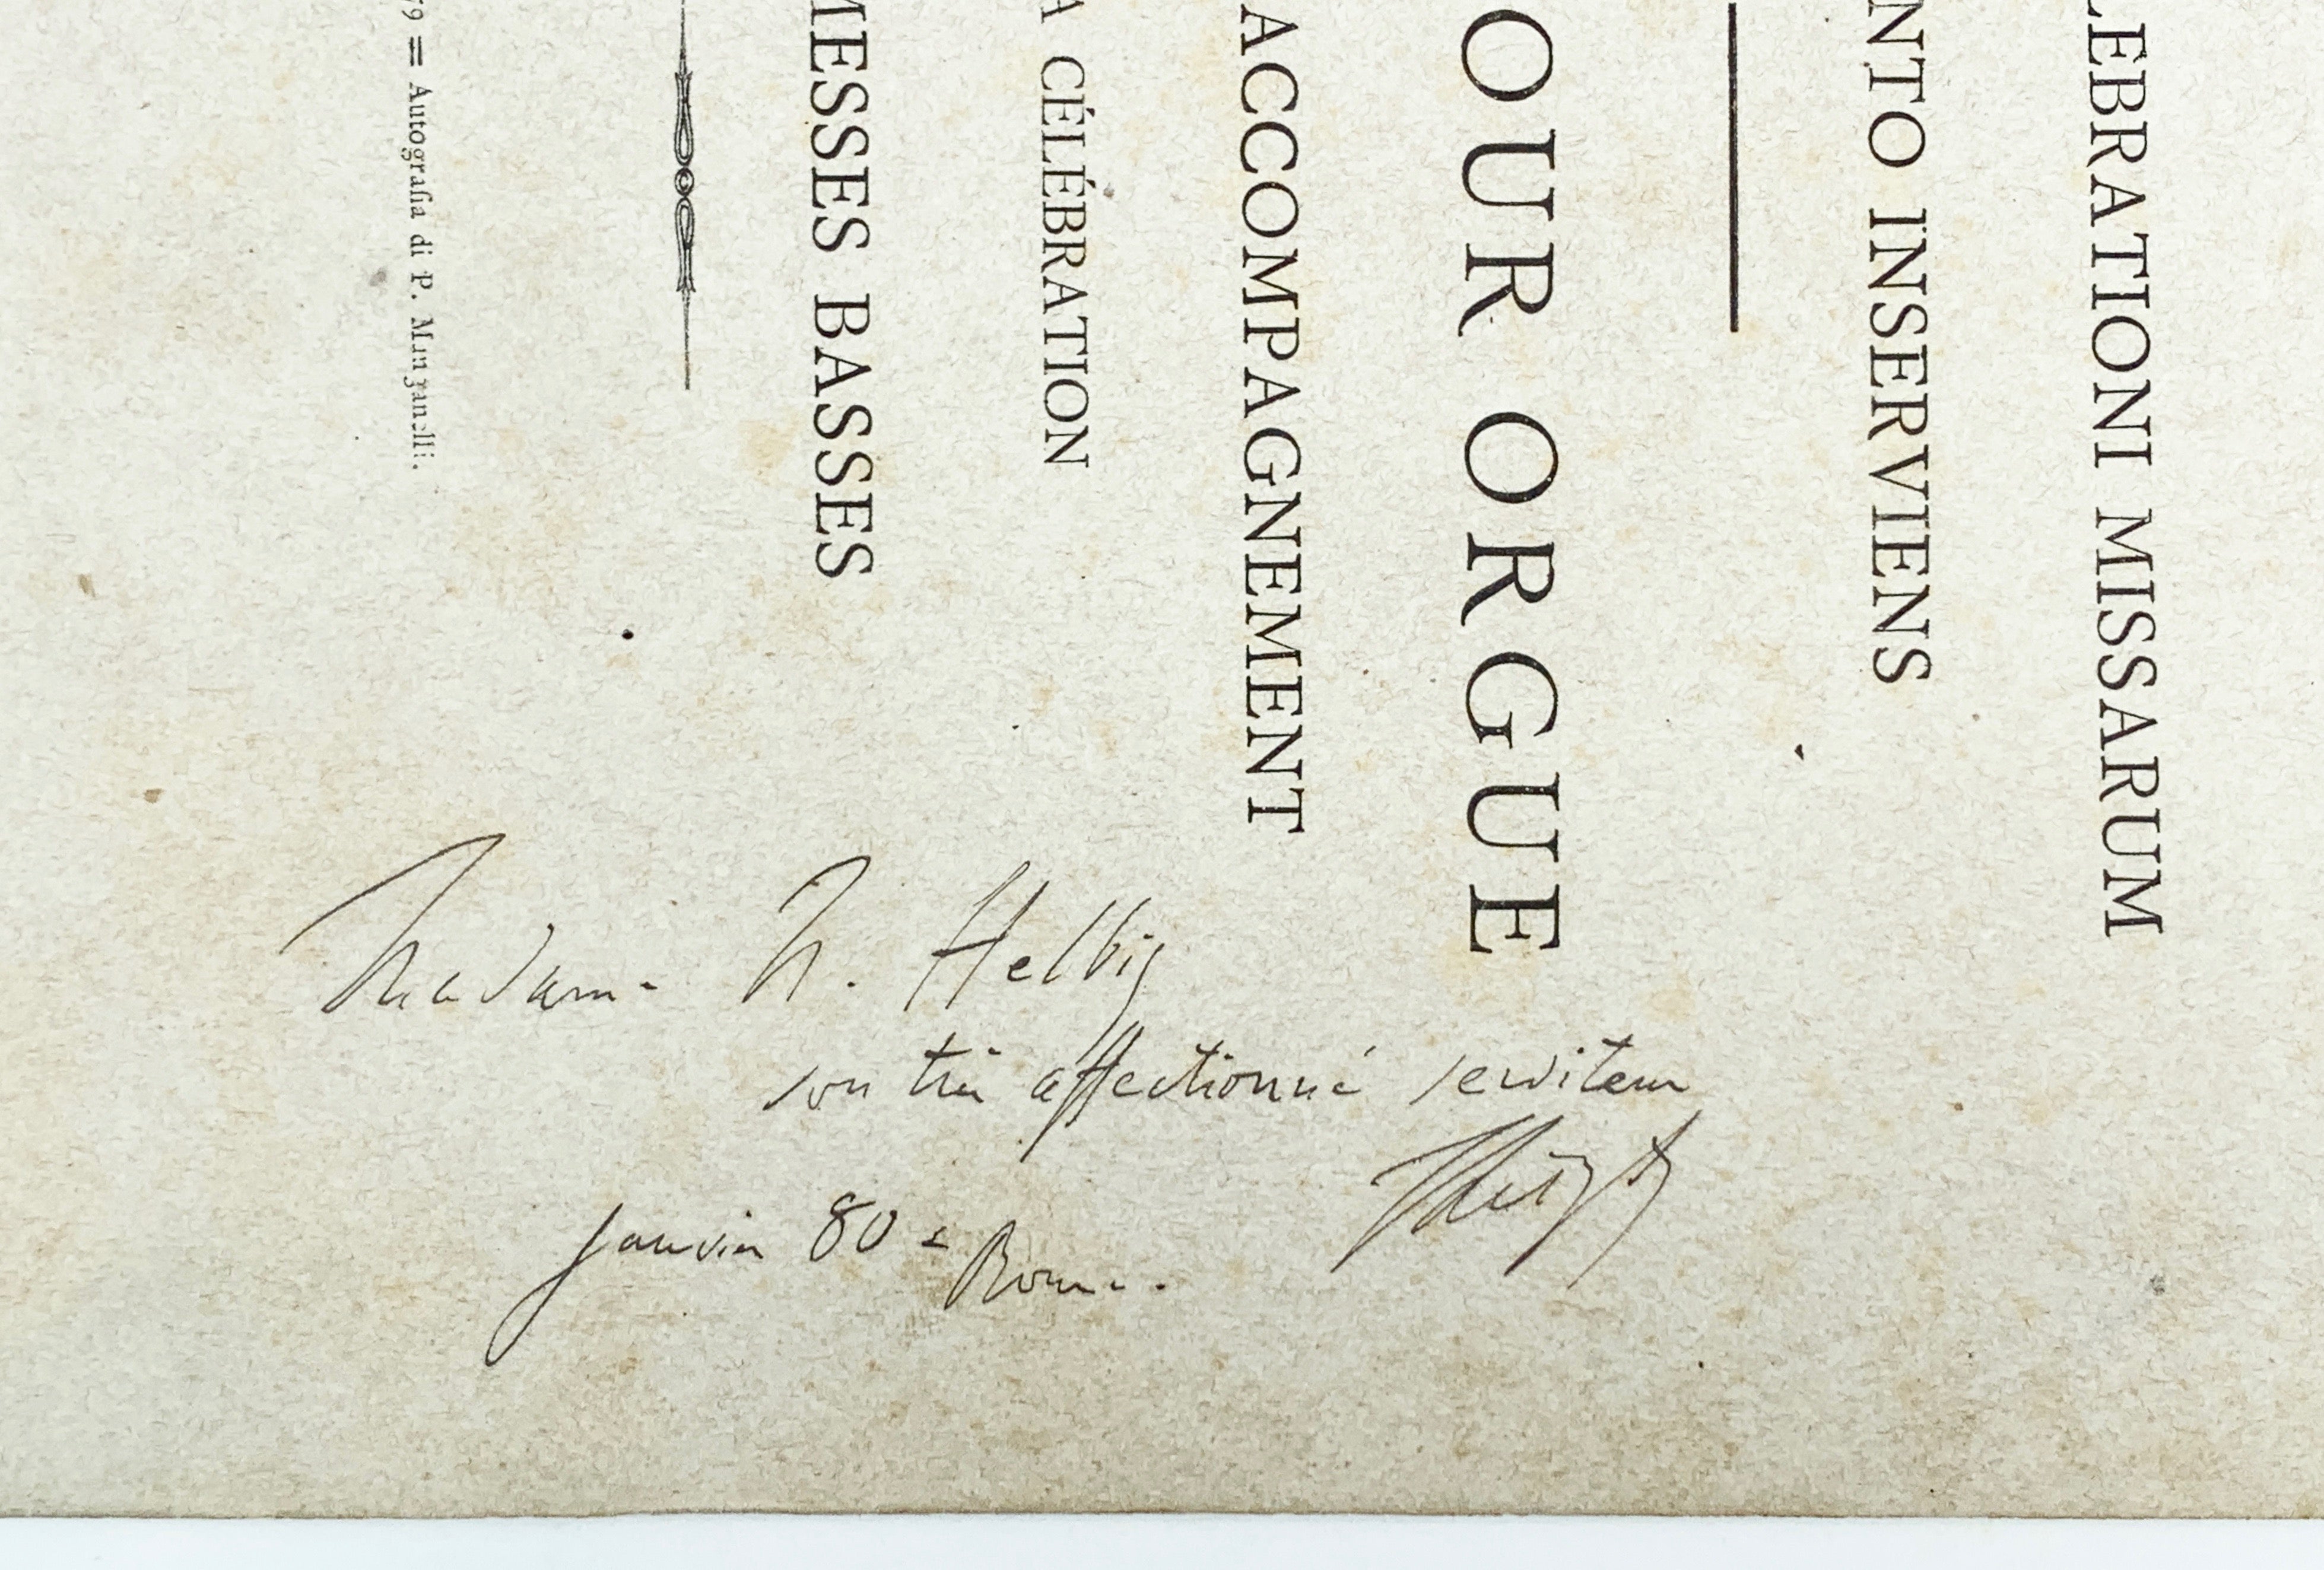 LEBRATIONI MISSARUM
NTO INSERVIENS
OUR ORGUE
ACCOMPAGNEMENT
A CÉLÉBRATION
MESSES BASSES
79 = Autografia di P. Manganelli.
Madame N. Helbig
son très affectionné serviteur
FLiszt
Janvier 80 = Rome.